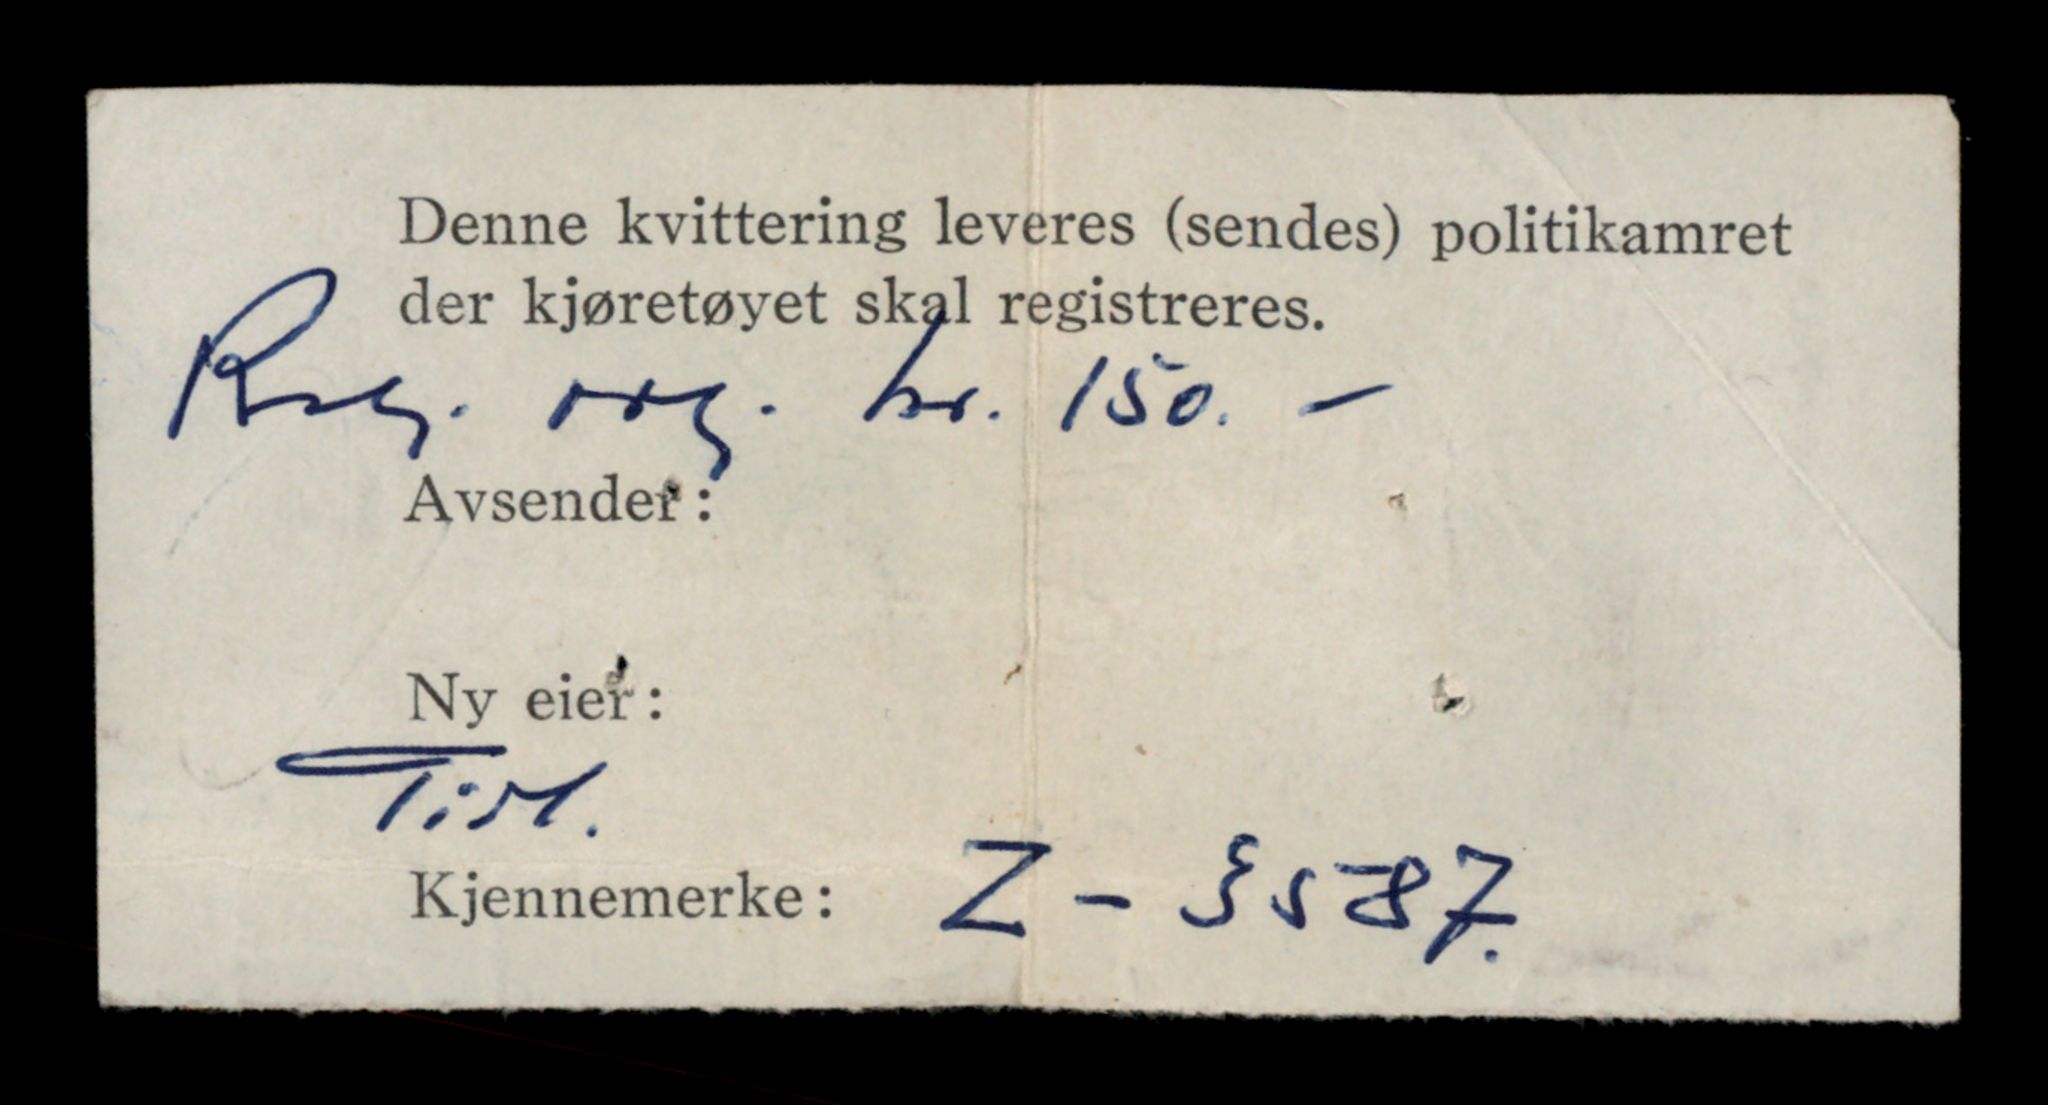 Denne kvittering leveres (sendes) politikamret
der kjøretøyet skal registreres.
Reg. org. kr. 150. –
Avsender:
Ny eier:
Tidl.
Kjennemerke: Z – 3587.